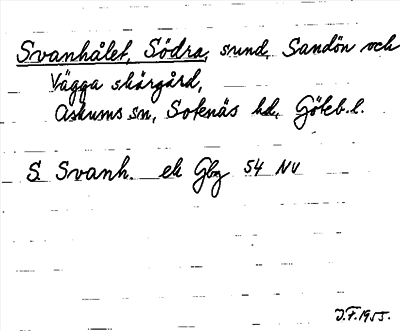 Svanhålet, Södra, sund, Sandön och
Vägga skärgård,
Askums sn, Sotenäs hd, Göteb. l.
S. Svanh. ek Gbg 54 NV
J.F. 1955.